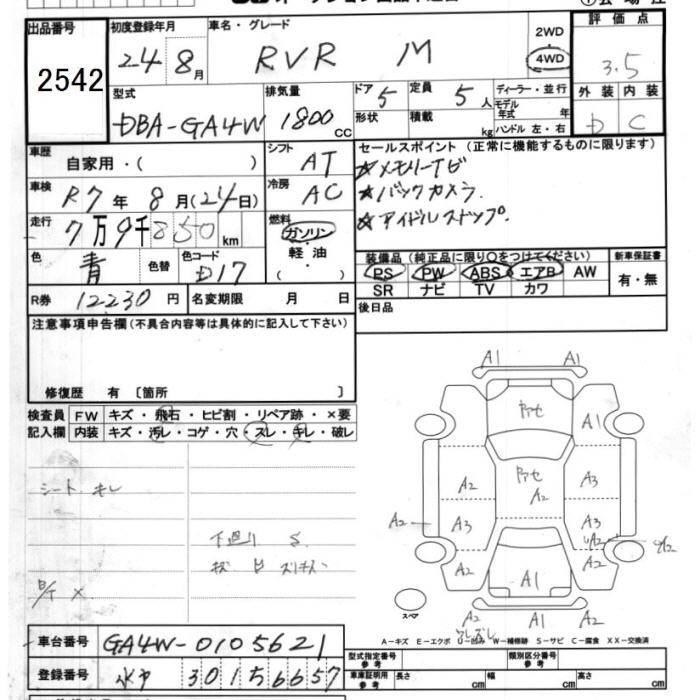 出品番号 初度登録年月 車名・グレード 2WD 評価点
2542 24 8月 RVR M 4WD 3.5
型式 排気量 ドア 5 定員 5人 ディーラー・並行 外装 内装
モデル年式 年
DBA-GA4W 1800 CC 形状 積載 kg ハンドル 左・右 D C
車歴 自家用・( ) シフト AT セールスポイント (正常に機能するものに限ります)
☆メモリーナビ
車検 R7年 8月(24日) 冷房 AC ☆バックカメラ.
走行 7万9千850km 燃料 ガソリン ☆アイドルストップ.
軽油
( )
色 青 色替 色コード D17 装備品 (純正品に限り○をつけてください) 新車保証書
PS PW ABS エアB AW 有・無
SR ナビ TV カワ
R券 12230円 名変期限 月 日 後日品
注意事項申告欄(不具合内容等は具体的に記入して下さい)
修復歴 有 〔箇所 〕
検査員 FW キズ・飛石・ヒビ割・リペア跡・×要
記入欄 内装 キズ・汚レ・コゲ・穴・スレ・キレ・破レ
シート キレ
下廻り S
A1 A1
A1
A2 A2 A3
A2 A3 A3
A2 A2
A1
A2 A1 A2
スペア
A-キズ E-エクボ U-凹み W-補修跡 S-サビ C-腐食 XX-交換済
車台番号 GA4W-0105621 型式指定番号 参考 類別区分番号 参考
登録番号 301 5 6657 車庫証明用 参考 長さ cm 幅 cm 高さ cm